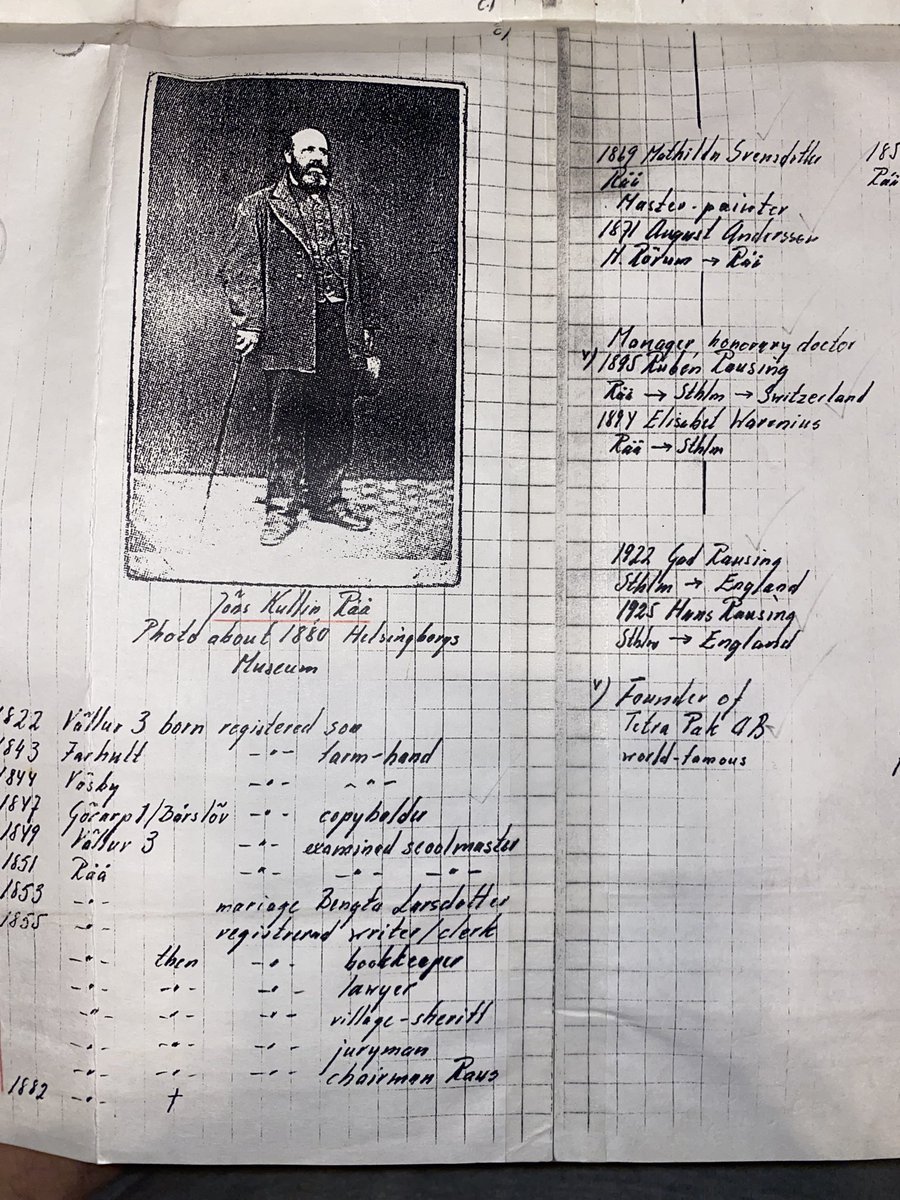 c)
Jöns Kullin Råå
Photo about 1880 Helsingborgs
Museum
1822 Vällur 3 born registered son
1843 Farhult -"- farm-hand
1844 Väsby -"- -"-
1847 Göcarp 1/Bårslöv -"-
1849 Vällur 3 -"- examined scoolmaster
1851 Råå -"- -"- -"-
1853 -"- mariage Bengta Larsdotter
1855 -"- registrerad writer/clerk
-"- then -"- bookkeeper
-"- -"- -"- lawyer
-"- -"- -"- village-sheriff
-"- -"- -"- juryman
-"- -"- -"- chairman Raus
1882 -"- †
1869 Mathilda Svensdotter
Råå
Master-painter
1871 August Andersson
H. Rörum → Råå
Manager, honorary doctor
v) 1895 Ruben Rausing
Råå → Sthlm → Switzerland
1894 Elisabet Warenius
Råå → Sthlm
1922 Gad Rausing
Sthlm → England
1925 Hans Rausing
Sthlm → England
v) Founder of
Tetra Pak AB
world-famous
185
Råå